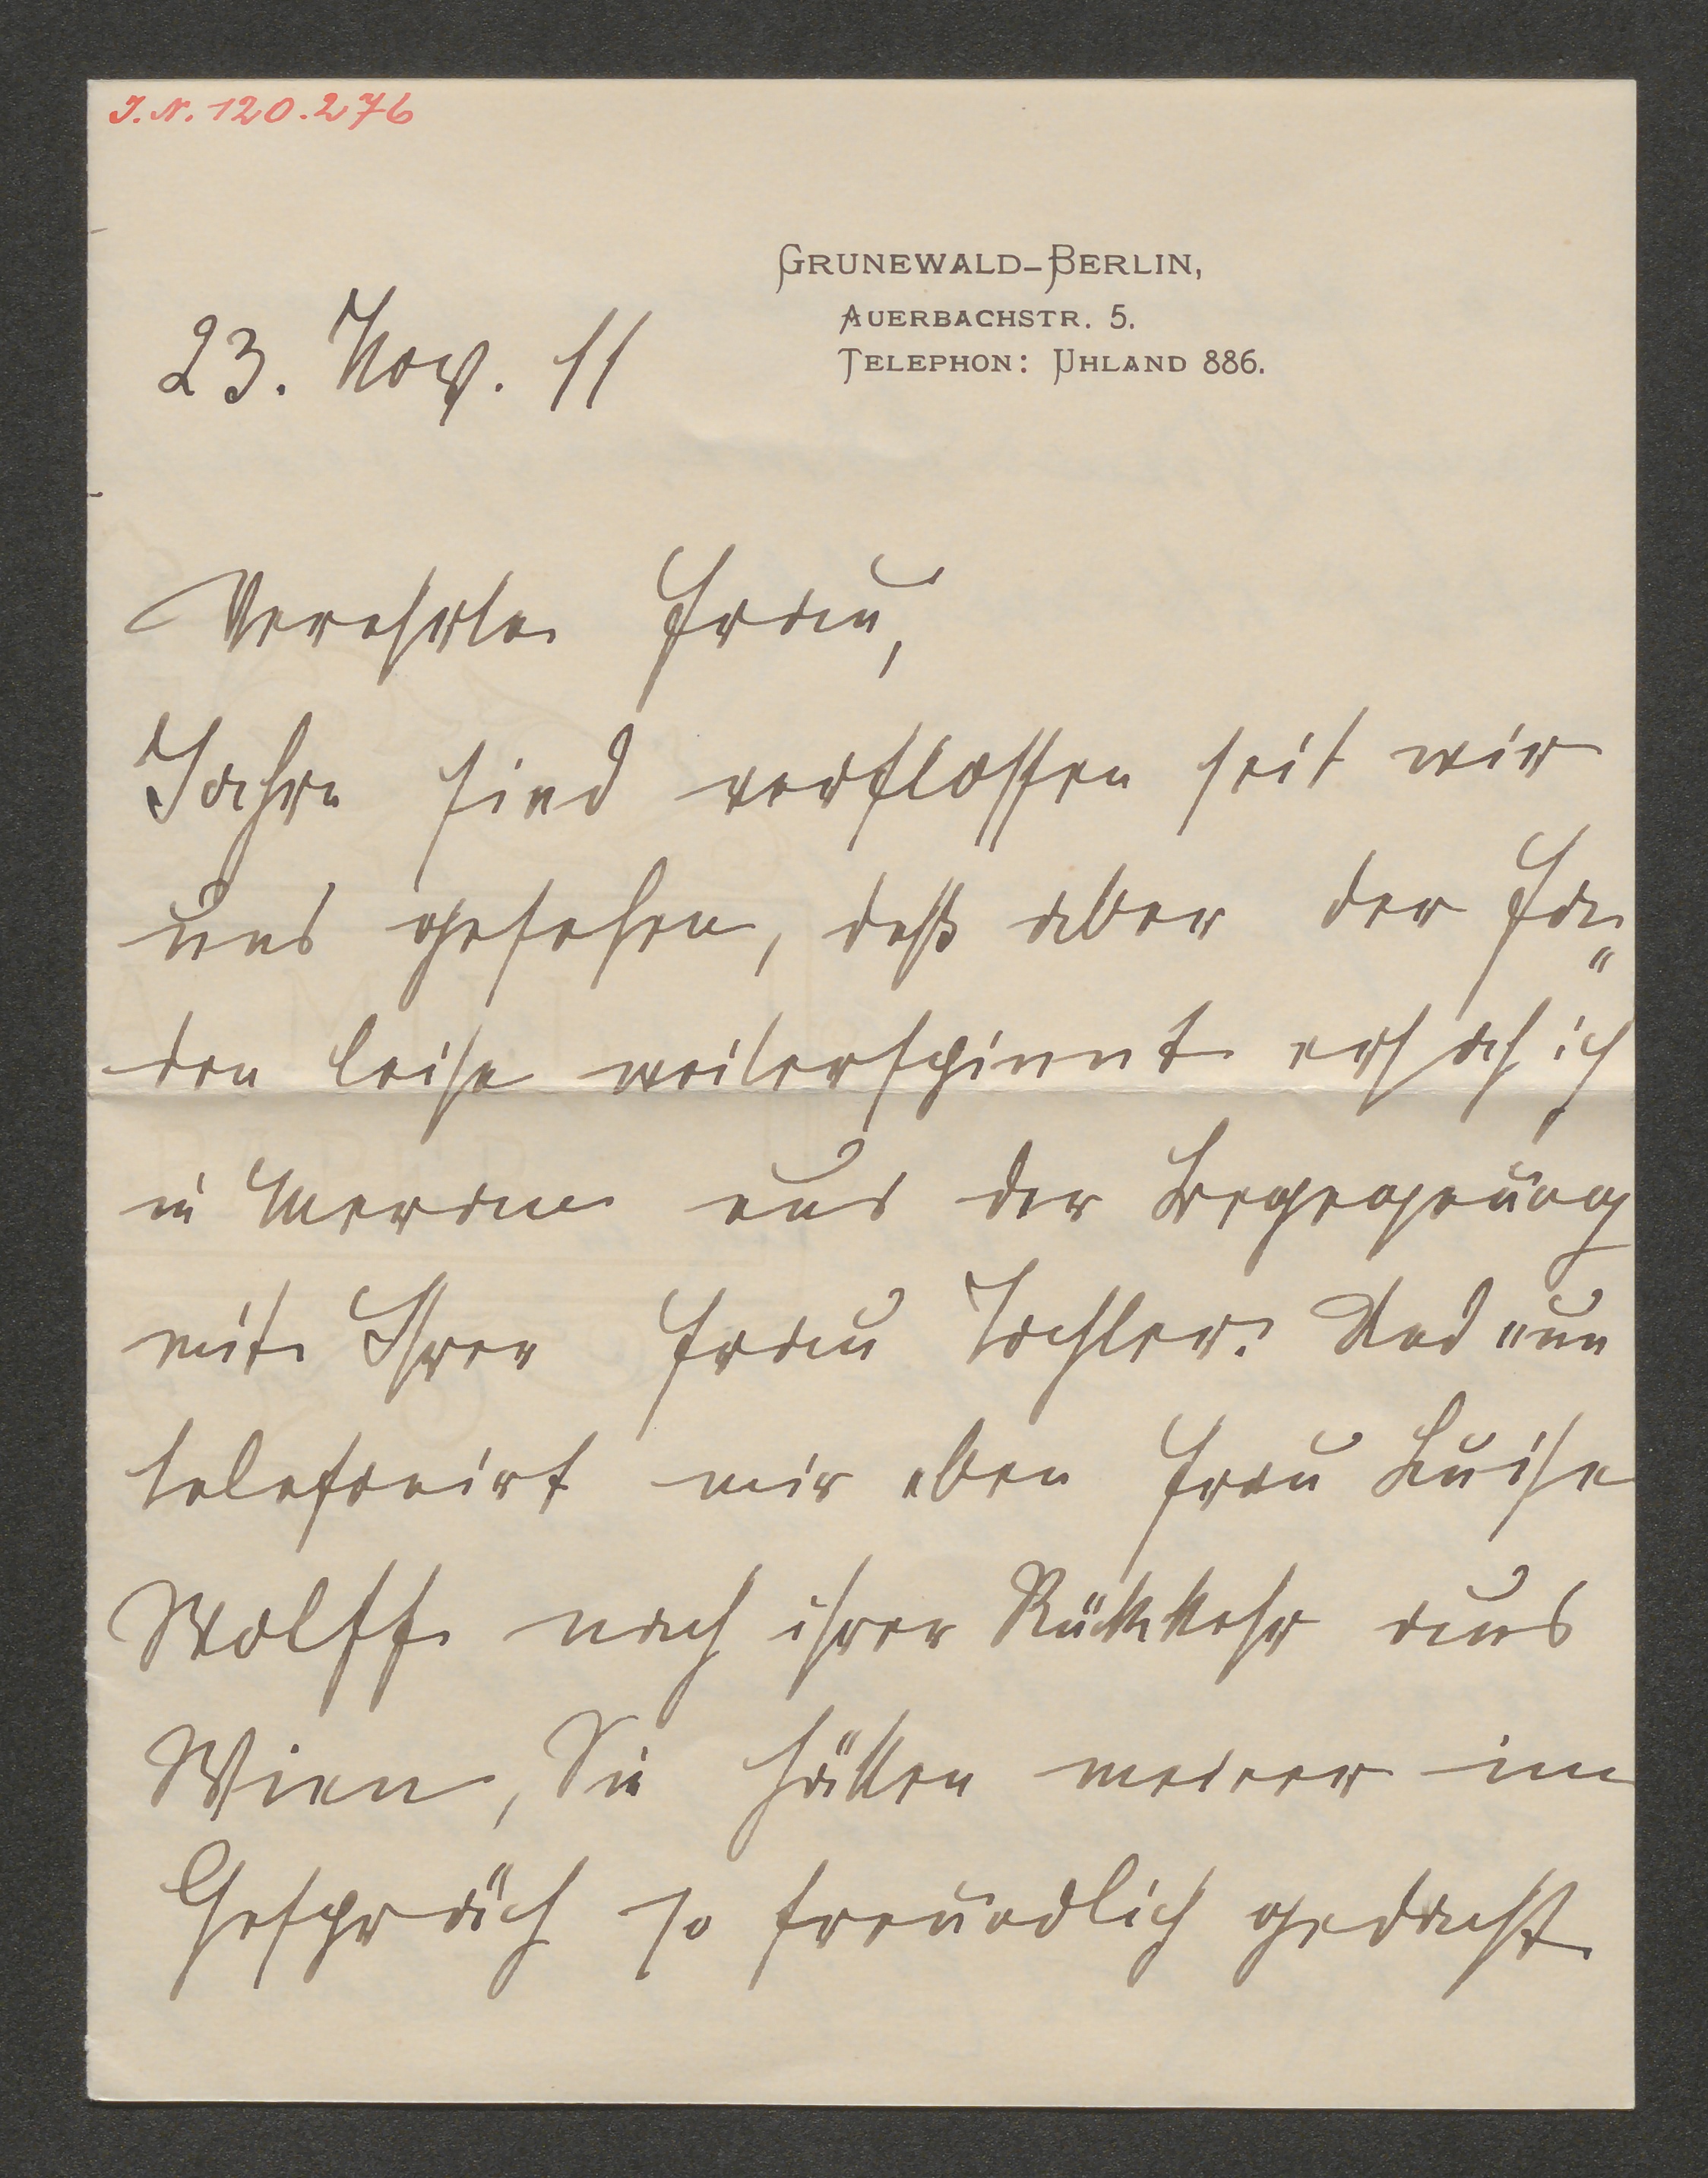 J. N. 120.276
GRUNEWALD-BERLIN,
AUERBACHSTR. 5.
TELEPHON: UHLAND 886.
23. Nov. 11
Verehrte Frau,
Jahre sind verflossen seit wir
uns gesehen, daß aber der Fa„
den leise weiterspinnt ersah ich
in Meran aus der Begegnung
mit Ihrer Frau Tochter. Und nun
telefonirt mir eben Frau Luise
Wolff nach ihrer Rückkehr aus
Wien, Sie hätten meiner im
Gespräch so freundlich gedacht